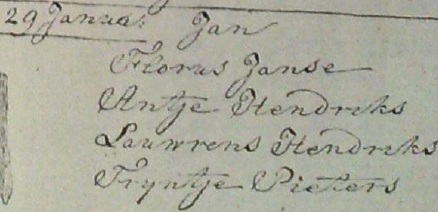 29 Janua: Jan
Florus Janse
Antje Hendriks
Lauwrens Hendriks
Tryntje Pieters